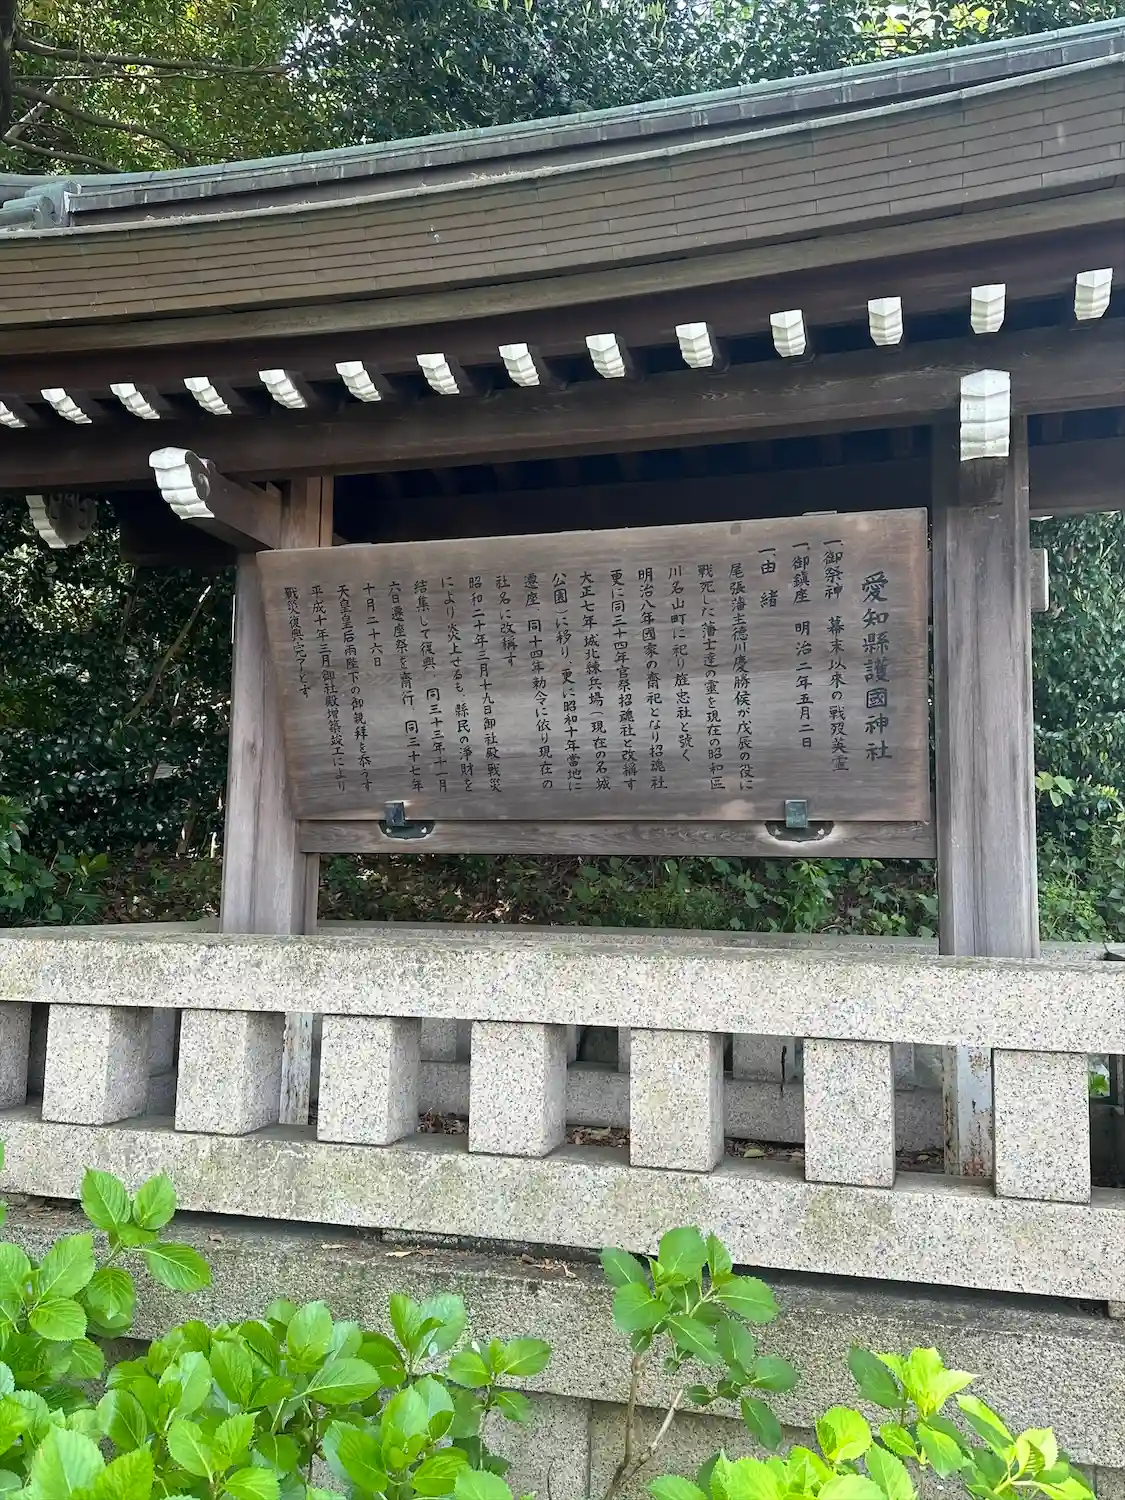 愛知縣護國神社
一、御祭神　幕末以來の戦歿英霊
一、御鎮座　明治二年五月二日
一、由緒
尾張藩主徳川慶勝候が戊辰の役に
戦死した藩士達の霊を現在の昭和区
川名山町に祀り旌忠社と號く
明治八年國家の斎祀となり招魂社
更に同三十四年官祭招魂社と改稱す
大正七年 城北練兵場（現在の名城
公園）に移り、更に昭和十年當地に
遷座 同十四年勅令に依り現在の
社名に改稱す
昭和二十年三月十九日御社殿戦災
により炎上さるも、縣民の浄財を
結集して復興、同三十三年十一月
六日遷座祭を斎行 同三十七年
十月二十六日
天皇皇后両陛下の御親拜を忝うす
平成十年三月御社殿増築竣工により
戦災復興完了とす